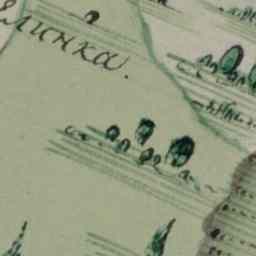 линка.